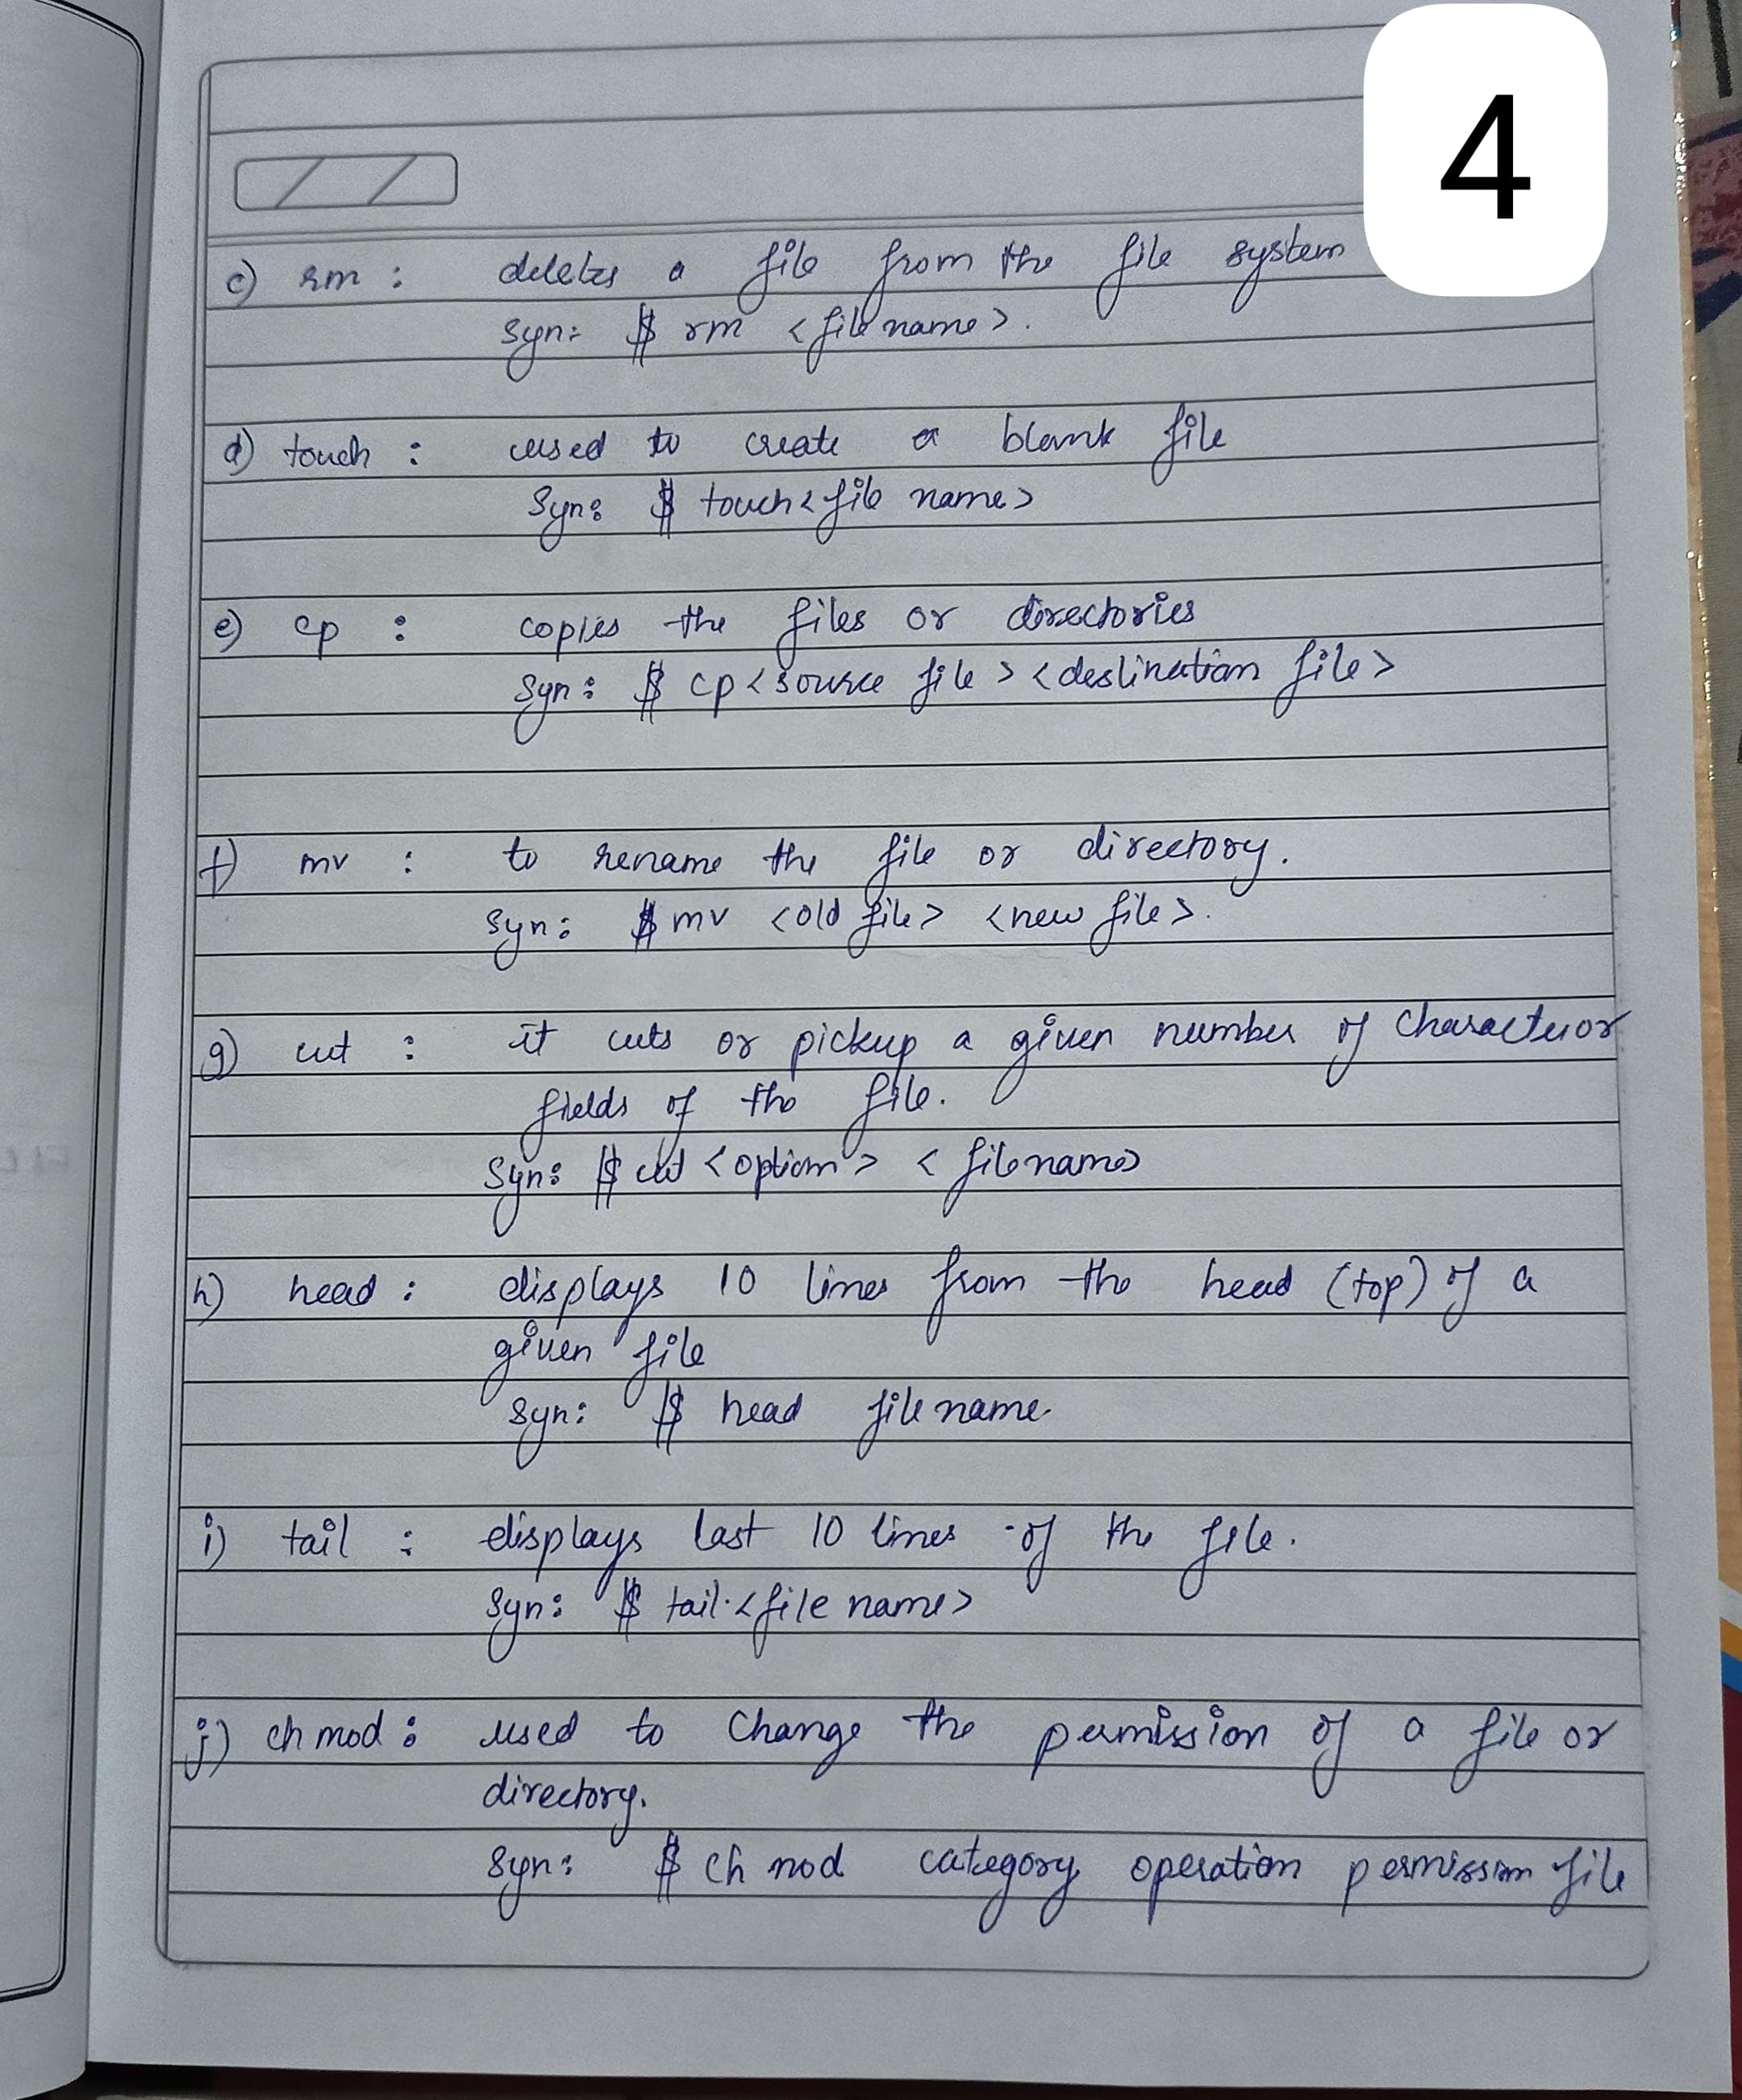 4
c) rm : deletes a file from the file system
Syn: $ rm <file name>.
d) touch : used to create a blank file
Syn: $ touch <file name>
e) cp : copies the files or directories
Syn: $ cp <source file> <destination file>
f) mv : to rename the file or directory.
Syn: $ mv <old file> <new file>.
g) cut : it cuts or pickup a given number of character or
fields of the file.
Syn: $ cut <option> <filename>
h) head : displays 10 lines from the head (top) of a
given file
Syn: $ head file name.
i) tail : displays last 10 lines of the file.
Syn: $ tail <file name>
j) ch mod : used to change the permission of a file or
directory.
Syn: $ ch mod category operation permission file